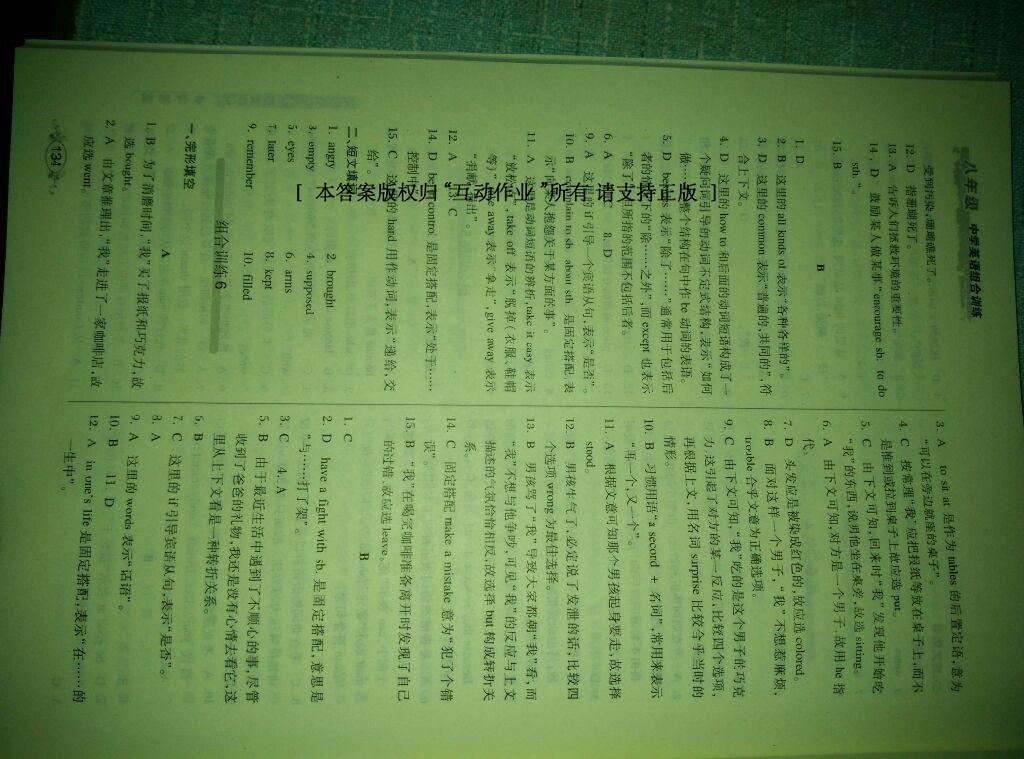 八年级 中学英语组合训练
受到污染,珊瑚礁死了。
12. D 指珊瑚死了。
13. A 告诉人们拯救环境的重要性。
14. D 鼓励某人做某事“encourage sb. to do
sth.”。
15. B
B
1. D
2. B 这里的 all kinds of 表示“各种各样的”。
3. D 这里的 common 表示“普遍的,共同的”,符
合上下文。
4. D 这里的 how to 和后面的动词短语构成了一
个疑问词引导的动词不定式结构,表示“如何
做……”,整个结构在句中作 be 动词的表语。
5. D 表示“除了……”通常用于包括后
者的情 下的“除……之外”,而 except 也表示
“除了 所指的范围不包括后者。
6. A 8. D
9. A 这里的 if 引导一个宾语从句,表示“是否”。
10. B complain to sb. about sth. 是固定搭配,表
示“向某人抱怨关于某方面的事”。
11. A 这里是动词短语的辨析,take it easy 表示
“放松 take off 表示“脱掉(衣服、鞋帽
等)” away 表示“拿走”,give away 表示
“捐献 出”。
12. A C
14. D be in control 是固定搭配,表示“处于……
控制
15. C 这里的 hard 用作动词,表示“递给,交
给”。
二、短文填
1. angry 2. brought
3. empty 4. supposed
5. eyes 6. arms
7. later 8. kept
9. remember 10. filled
组合训练 6
一、完形填空
A
1. B 为了消磨时间,“我”买了报纸和巧克力,故
选 bought。
2. A 由文章推理出,“我”走进了一家咖啡店,故
应选 went。
134
3. A to sit at 是作为 tables 的后置定语,意为
“可以在旁边就座的桌子”。
4. C 按常理“我”应把报纸等放在桌子上,而不
是推到或拉到桌子上故应选 put。
5. C 由下文可知,回来时“我”发现他开始吃
“我”的东西,说明他坐在桌旁,故选 sitting。
6. A 由下文可知,对方是一个男子,故用 he 指
代。
7. D 头发应是被染成红色的,故应选 colored。
8. B 面对这样一个男子,“我”不想惹麻烦,
trouble 合乎文意为正确选项。
9. C 由下文可知,“我”吃的是这个男子的巧克
力,这引起了对方的某一反应,比较四个选项,
再根据上文,用名词 surprise 比较合乎当时的
情形。
10. B 习惯用语“a second + 名词”,常用来表示
“再一个,又一个”。
11. A 根据文意可知那个男孩起身要走,故选择
stood。
12. B 男孩生气了,必定说了发泄的话,比较四
个选项 wrong 为最佳选择。
13. B 男孩骂了“我”导致大家都朝“我”看,而
“我”不想与他争吵,可见“我”的反应与上文
描述的气氛恰恰相反,故选择 but 构成转折关
系。
14. C 固定搭配 make a mistake 意为“犯了个错
误”。
15. B “我”在喝完咖啡准备离开时发现了自己
的过错,故应选 leave。
B
1. C
2. D have a fight with sb. 是固定搭配,意思是
“与……打了架”。
3. C 4. A
5. B 由于最近生活中遇到了不顺心的事,尽管
收到了爸爸的礼物,我还是没有心情去看它,这
里从上下文看是一种转折关系。
5. B
7. C 这里的 if 引导宾语从句,表示“是否”。
8. A
9. A 这里的 words, 表示“话语”。
10. B 11. D
12. A in one's life 是固定搭配,表示“在……的
一生中”。
[ 本答案版权归“互动作业”所有 请支持正版 ]